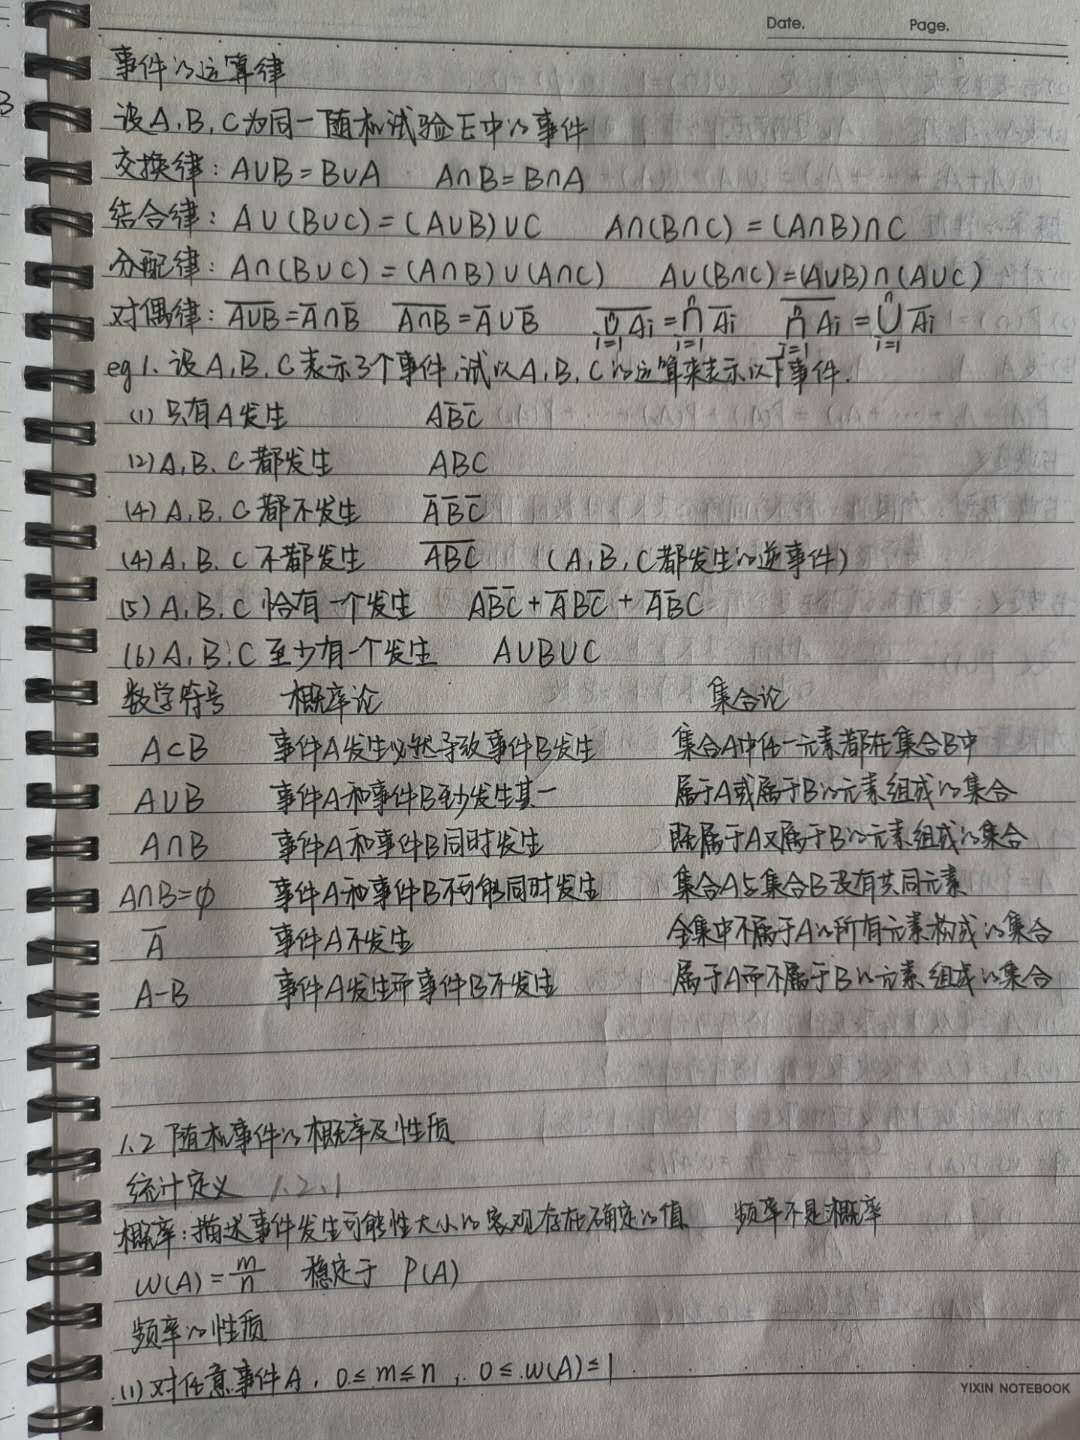 Date. Page.
事件的运算律
设A,B,C为同一随机试验E中的事件
交换律: A∪B=B∪A A∩B=B∩A
结合律: A∪(B∪C)=(A∪B)∪C A∩(B∩C)=(A∩B)∩C
分配律: A∩(B∪C)=(A∩B)∪(A∩C) A∪(B∩C)=(A∪B)∩(A∪C)
对偶律: A̅∪̅B̅=A̅∩B̅ A̅∩̅B̅=A̅∪B̅ \overline{⋃_{i=1}^{n} Ai}=⋂_{i=1}^{n} A̅i \overline{⋂_{i=1}^{n} Ai}=⋃_{i=1}^{n} A̅i
eg1. 设A,B,C表示3个事件,试以A,B,C的运算来表示以下事件.
(1) 只有A发生 AB̅C̅
(2) A,B,C都发生 ABC
(4) A,B,C都不发生 A̅ B̅ C̅
(4) A,B,C不都发生 \overline{ABC} (A,B,C都发生的逆事件)
(5) A,B,C恰有一个发生 AB̅C̅+A̅BC̅+A̅B̅C
(6) A,B,C至少有一个发生 A∪B∪C
数学符号 概率论 集合论
A⊂B 事件A发生必然导致事件B发生 集合A中任一元素都在集合B中
A∪B 事件A和事件B至少发生其一 属于A或属于B的元素组成的集合
A∩B 事件A和事件B同时发生 既属于A又属于B的元素组成的集合
A∩B=φ 事件A和事件B不可能同时发生 集合A与集合B没有共同元素
A̅ 事件A不发生 全集中不属于A的所有元素构成的集合
A-B 事件A发生而事件B不发生 属于A而不属于B的元素组成的集合
1.2 随机事件的概率及性质
统计定义 1.2.1
概率:描述事件发生可能性大小的客观存在确定的值 频率不是概率
W(A)=m/n 稳定于 P(A)
频率的性质
(1) 对任意事件A, 0≤m≤n, 0≤W(A)≤1
YIXIN NOTEBOOK